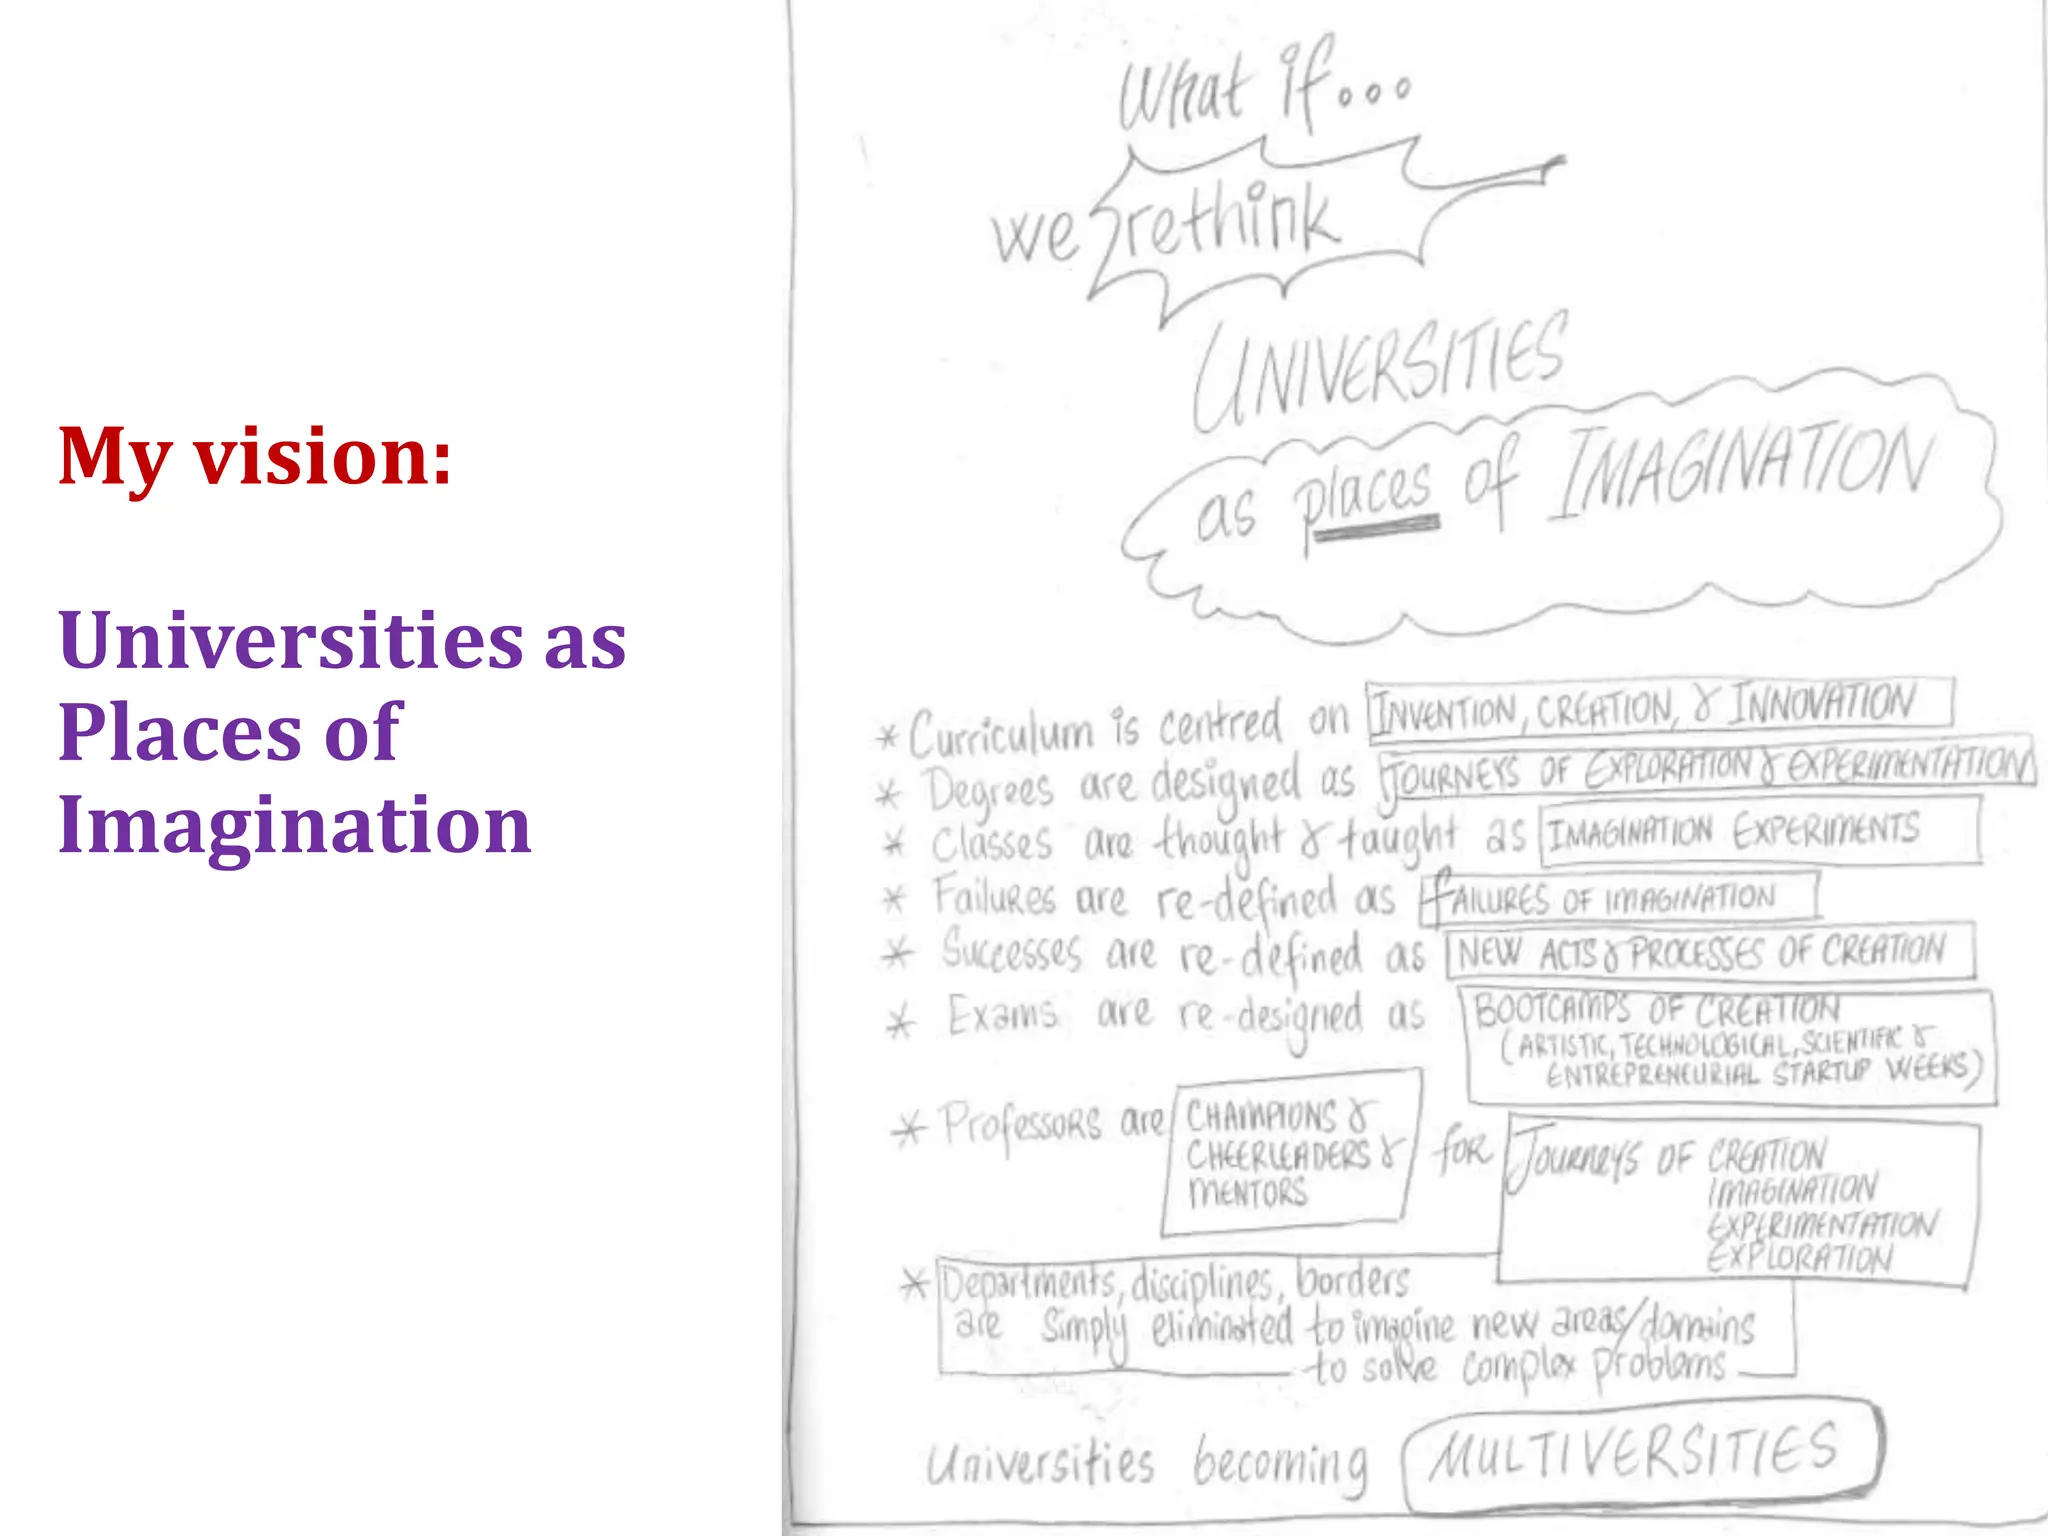 My vision:
Universities as
Places of
Imagination
What if...
we rethink
UNIVERSITIES
as places of IMAGINATION
* Curriculum is centred on INVENTION, CREATION, & INNOVATION
* Degrees are designed as JOURNEYS OF EXPLORATION & EXPERIMENTATION
* Classes are thought & taught as IMAGINATION EXPERIMENTS
* Failures are re-defined as FAILURES OF IMAGINATION
* Successes are re-defined as NEW ACTS & PROCESSES OF CREATION
* Exams are re-designed as BOOTCAMPS OF CREATION
(ARTISTIC, TECHNOLOGICAL, SCIENTIFIC &
ENTREPRENEURIAL STARTUP WEEKS)
* Professors are CHAMPIONS &
CHEERLEADERS &
MENTORS
for JOURNEYS OF CREATION
IMAGINATION
EXPERIMENTATION
EXPLORATION
* Departments, disciplines, borders
are simply eliminated to imagine new areas/domains
to solve complex problems
Universities becoming MULTIVERSITIES